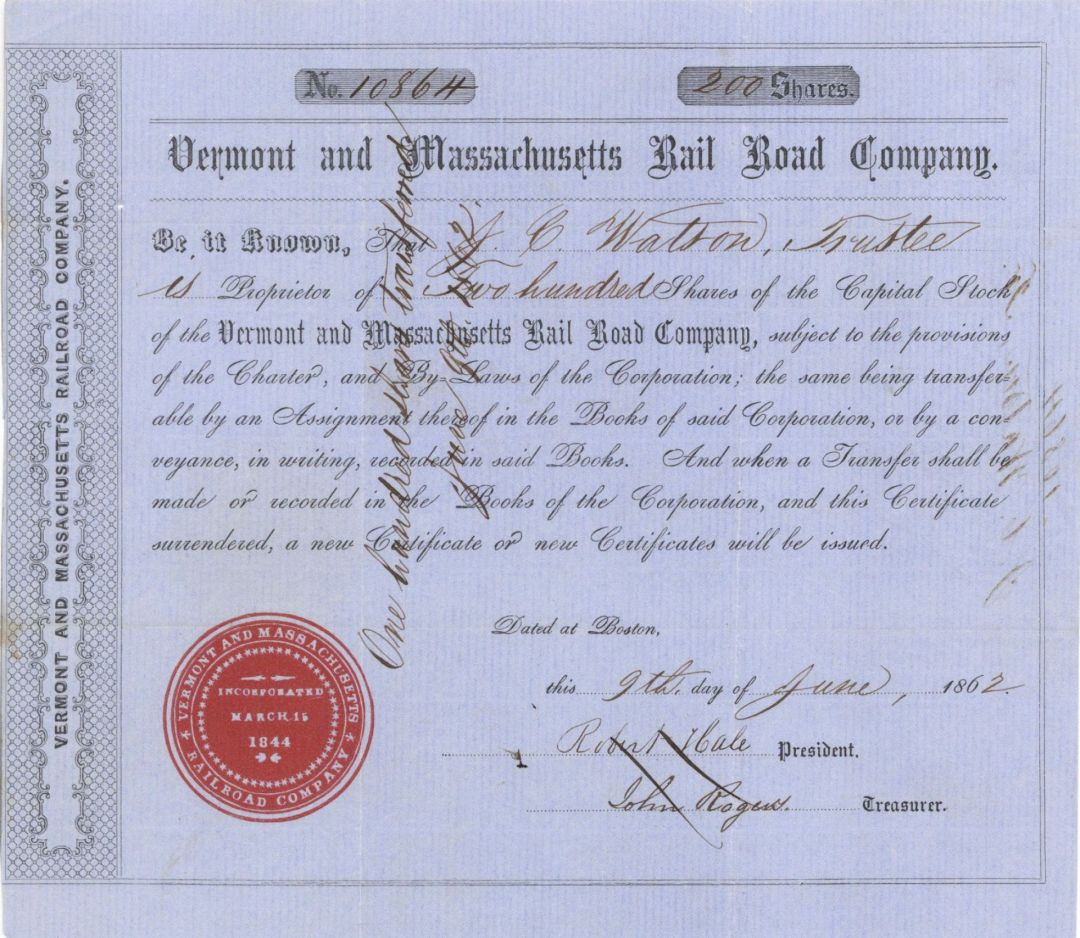 No. 10864
200 Shares.
Vermont and Massachusetts Rail Road Company.
Be it Known, That J. C. Watson, Trustee
is Proprietor of Two hundred Shares of the Capital Stock
of the Vermont and Massachusetts Rail Road Company, subject to the provisions
of the Charter, and By-Laws of the Corporation; the same being transfer=
able by an Assignment thereof in the Books of said Corporation, or by a con-
veyance, in writing, recorded in said Books. And when a Transfer shall be
made or recorded in the Books of the Corporation, and this Certificate
surrendered, a new Certificate or new Certificates will be issued.
Dated at Boston,
this 9th. day of June, 1862
Robert Hale President.
John Rogers. Treasurer.
One hundred shares transferred
June 9th 1862.
VERMONT AND MASSACHUSETTS RAILROAD COMPANY.
VERMONT AND MASSACHUSETTS
RAILROAD COMPANY
INCORPORATED
MARCH 15
1844